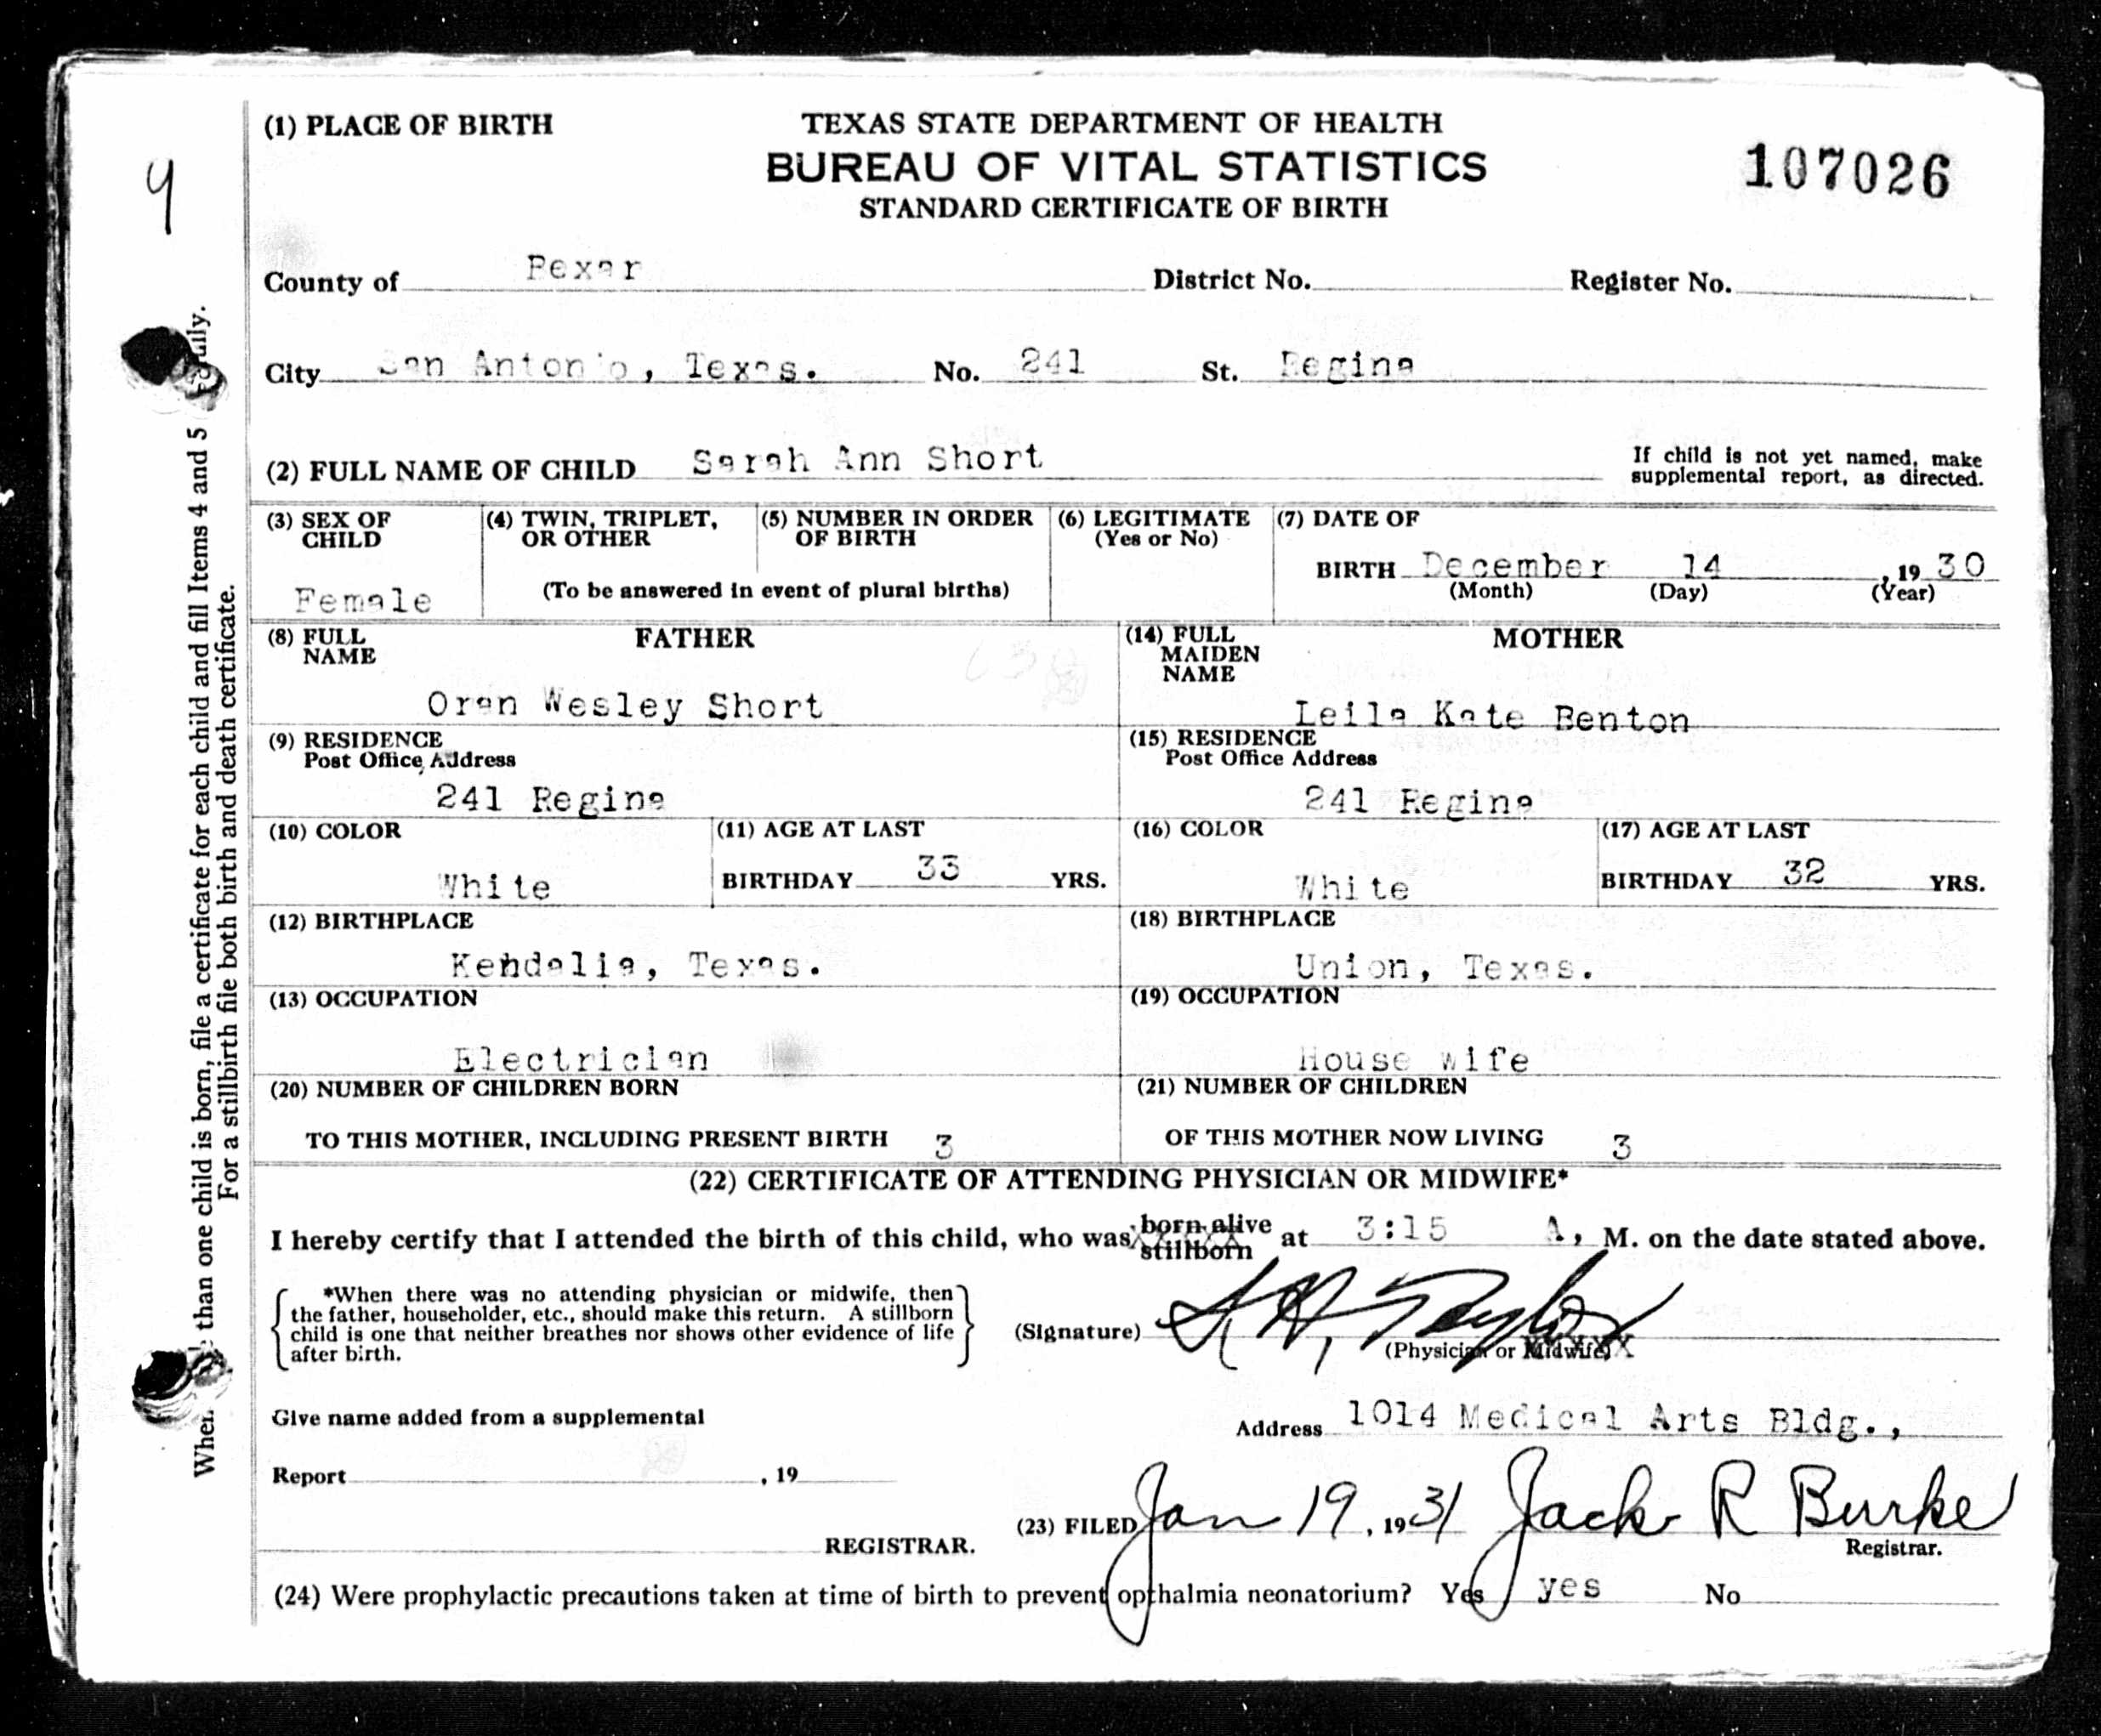 (1) PLACE OF BIRTH
TEXAS STATE DEPARTMENT OF HEALTH
BUREAU OF VITAL STATISTICS
STANDARD CERTIFICATE OF BIRTH
107026
County of Bexar District No. Register No.
City San Antonio, Texas. No. 241 St. Regina
(2) FULL NAME OF CHILD Sarah Ann Short
If child is not yet named, make
supplemental report, as directed.
(3) SEX OF
CHILD
Female
(4) TWIN, TRIPLET,
OR OTHER
(5) NUMBER IN ORDER
OF BIRTH
(To be answered in event of plural births)
(6) LEGITIMATE
(Yes or No)
(7) DATE OF
BIRTH December 14, 1930
(Month) (Day) (Year)
(8) FULL
NAME
FATHER
Oran Wesley Short
(14) FULL
MAIDEN
NAME
MOTHER
Leila Kate Benton
(9) RESIDENCE
Post Office Address
241 Regina
(15) RESIDENCE
Post Office Address
241 Regina
(10) COLOR
White
(11) AGE AT LAST
BIRTHDAY 33 YRS.
(16) COLOR
White
(17) AGE AT LAST
BIRTHDAY 32 YRS.
(12) BIRTHPLACE
Kendalia, Texas.
(18) BIRTHPLACE
Union, Texas.
(13) OCCUPATION
Electrician
(19) OCCUPATION
House wife
(20) NUMBER OF CHILDREN BORN
TO THIS MOTHER, INCLUDING PRESENT BIRTH 3
(21) NUMBER OF CHILDREN
OF THIS MOTHER NOW LIVING 3
(22) CERTIFICATE OF ATTENDING PHYSICIAN OR MIDWIFE*
I hereby certify that I attended the birth of this child, who was born alive stillborn at 3:15 A, M. on the date stated above.
*When there was no attending physician or midwife, then
the father, householder, etc., should make this return. A stillborn
child is one that neither breathes nor shows other evidence of life
after birth.
(Signature) H, Taylor
(Physician or Midwife)
Give name added from a supplemental
Address 1014 Medical Arts Bldg.,
Report , 19
(23) FILED Jan 19, 1931 Jack R Burke
REGISTRAR.
Registrar.
(24) Were prophylactic precautions taken at time of birth to prevent opthalmia neonatorium? Yes yes No
than one child is born, file a certificate for each child and fill Items 4 and 5
For a stillbirth file both birth and death certificate.